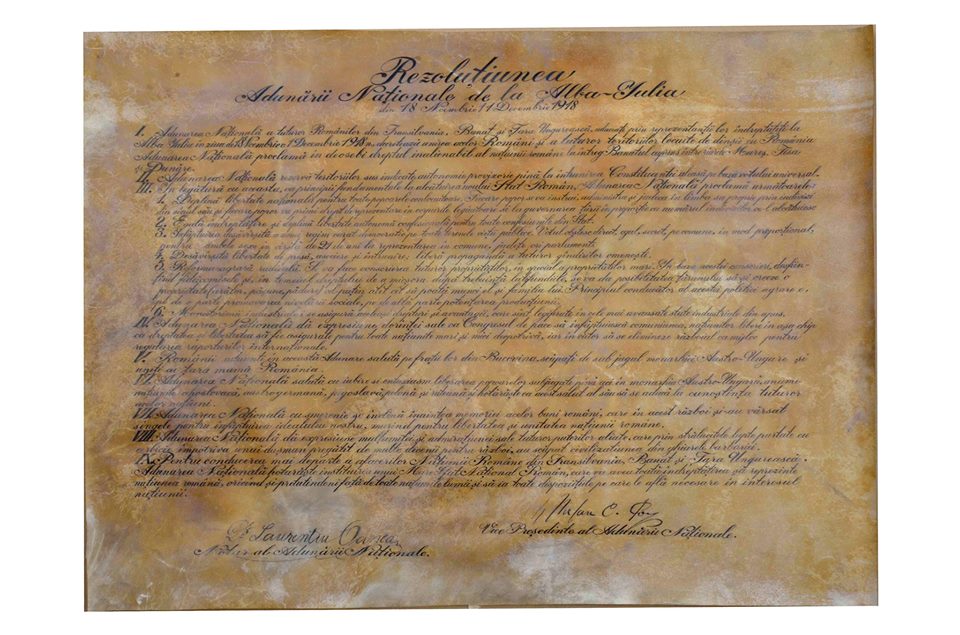 Rezoluțiunea
Adunării Naționale de la Alba-Iulia
din 18 Noembrie/1 Decembrie 1918
I. Adunarea Națională a tuturor Românilor din Transilvania, Banat și Țara Ungurească, adunați prin reprezentanții lor îndreptățiți la
Alba Iulia în ziua de 18 Noembrie/1 Decembrie 1918, decretează unirea acelor Români și a tuturor teritoriilor locuite de dânșii cu România.
Adunarea Națională proclamă îndeosebi dreptul inalienabil al națiunii române la întreg Banatul cuprins între râurile Mureș, Tisa
și Dunăre.
II. Adunarea Națională rezervă teritoriilor sus indicate autonomie provizorie până la întrunirea Constituantei aleasă pe baza votului universal.
III. În legătură cu aceasta, ca principii fundamentale la alcătuirea noului Stat Român, Adunarea Națională proclamă următoarele:
1. Deplină libertate națională pentru toate popoarele conlocuitoare. Fiecare popor se va instrui, administra și judeca în limba sa proprie prin indivizi
din sînul său și fiecare popor va primi drept de reprezentare în corpurile legiuitoare și la guvernarea țării în proporție cu numărul indivizilor ce-l alcătuiesc
2. Egală îndreptățire și deplină libertate autonomă confesională pentru toate confesiunile din Stat.
3. Înfăptuirea desăvârșită a unui regim curat democratic pe toate terenele vieții publice. Votul obștesc, direct, egal, secret, pe comune, în mod proporțional,
pentru ambele sexe, în vârstă de 21 de ani la reprezentarea în comune, județe ori parlament.
4. Desăvârșită libertate de presă, asociere și întrunire, liberă propagandă a tuturor gândirilor omenești.
5. Reforma agrară radicală. Se va face conscrierea tuturor proprietăților, în special a proprietăților mari. În baza acestei conscrieri, desființând
fideicomisele și în temeiul dreptului de a micșora după trebuință latifundiile, se va da posibilitatea țăranului să-și creeze o
proprietate
6. Muncitorimei industriale i se asigură aceleași drepturi și avantagii, care sunt legiferate în cele mai avansate state industriale din apus.
IV. Adunarea Națională dă expresiune dorinței sale ca Congresul de pace să înfăptuiască comuniunea națiunilor libere în așa chip
ca dreptatea și libertatea să fie asigurate pentru toate națiunile mari și mici deopotrivă, iar în viitor să se elimineze războiul ca mijloc pentru
regularea raporturilor internaționale.
V. Românii adunați în această Adunare salută pe frații lor din Bucovina, scăpați de sub jugul monarhiei Austro-Ungare și
uniți cu țara mamă România.
VI. Adunarea Națională salută cu iubire și entuziasm liberarea popoarelor subjugate până aci în monarhia Austro-Ungară, anume
națiunile
acelor națiuni.
VII. Adunarea Națională cu smerenie se închină înaintea memoriei acelor buni români, care în acest război și-au vărsat
sângele pentru înfăptuirea idealului nostru, murind pentru libertatea și unitatea națiunii române.
VIII. Adunarea Națională dă expresiune mulțumitei și admirațiunei sale tuturor puterilor aliate, care prin strălucitele lupte purtate cu
împotriva unui dușman pregătit de multe decenii pentru război, au scăpat civilizațiunea din ghiarele barbariei.
IX. Pentru conducerea mai departe a afacerilor Națiunii Române din Transilvania, Banat și Țara Ungurească,
Adunarea Națională hotărăște instituirea unui Mare Sfat Național Român, care va avea toată îndreptățirea să reprezinte
națiunea română, oricând și pretutindeni față de toate națiunile lumii și să ia toate dispozițiile pe care le află necesare în interesul
națiunii.
Laurentiu Oanea
Notar al Adunării Naționale.
Ștefan C. Pop
Vice Președinte al Adunării Naționale.